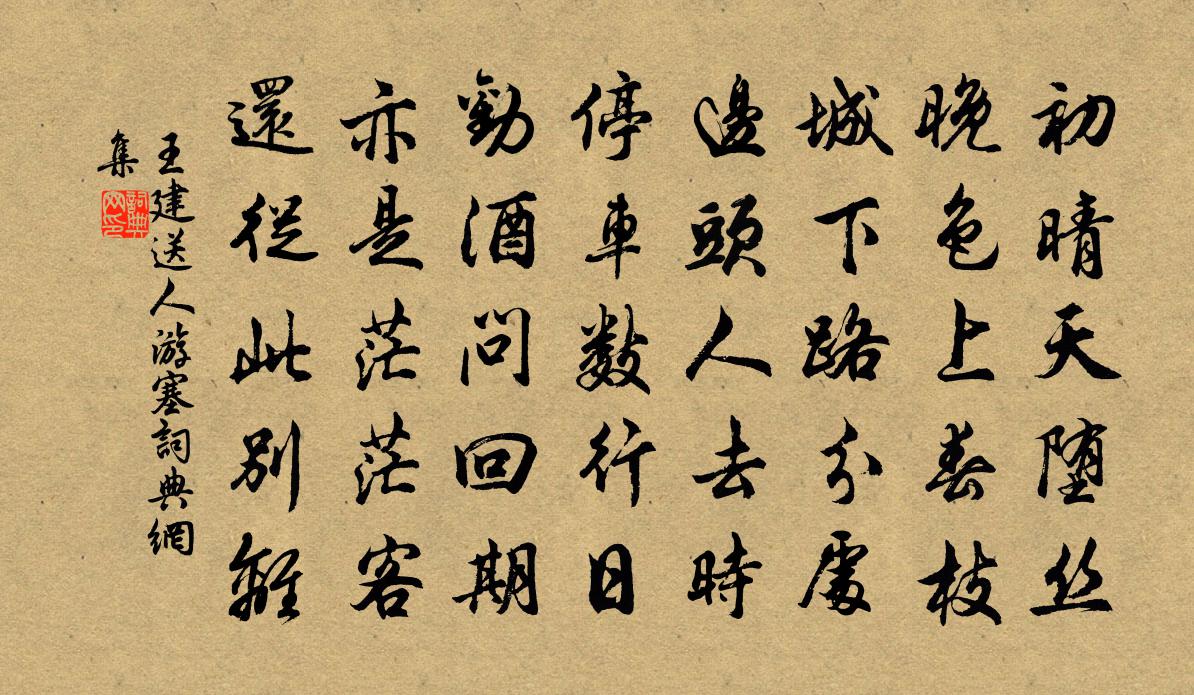 初晴天堕丝
晚色上春枝
城下路分處
邊頭人去時
停車數行日
勸酒問回期
亦是茫茫客
還從此別離
王建送人游塞詞典網
集
詞典网印